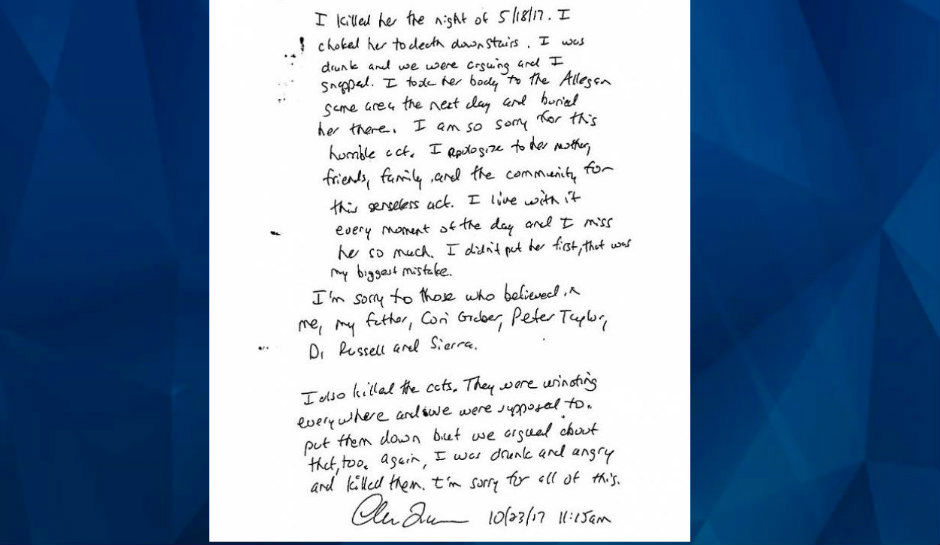 I killed her the night of 5/18/17. I
choked her to death downstairs. I was
drunk and we were arguing and I
snapped. I took her body to the Allegan
game area the next day and buried
her there. I am so sorry for this
horrible act. I apologize to her mother,
friends, family, and the community for
this senseless act. I live with it
every moment of the day and I miss
her so much. I didn't put her first, that was
my biggest mistake.
I'm sorry to those who believed in
me, my father, Cori Peter Taylor,
D. Russell and Sierra.
I also killed the cats. They were urinating
everywhere and we were supposed to.
put them down but we argued about
that, too. Again, I was drunk and angry
and killed them. I'm sorry for all of this.
10/23/17 11:15am